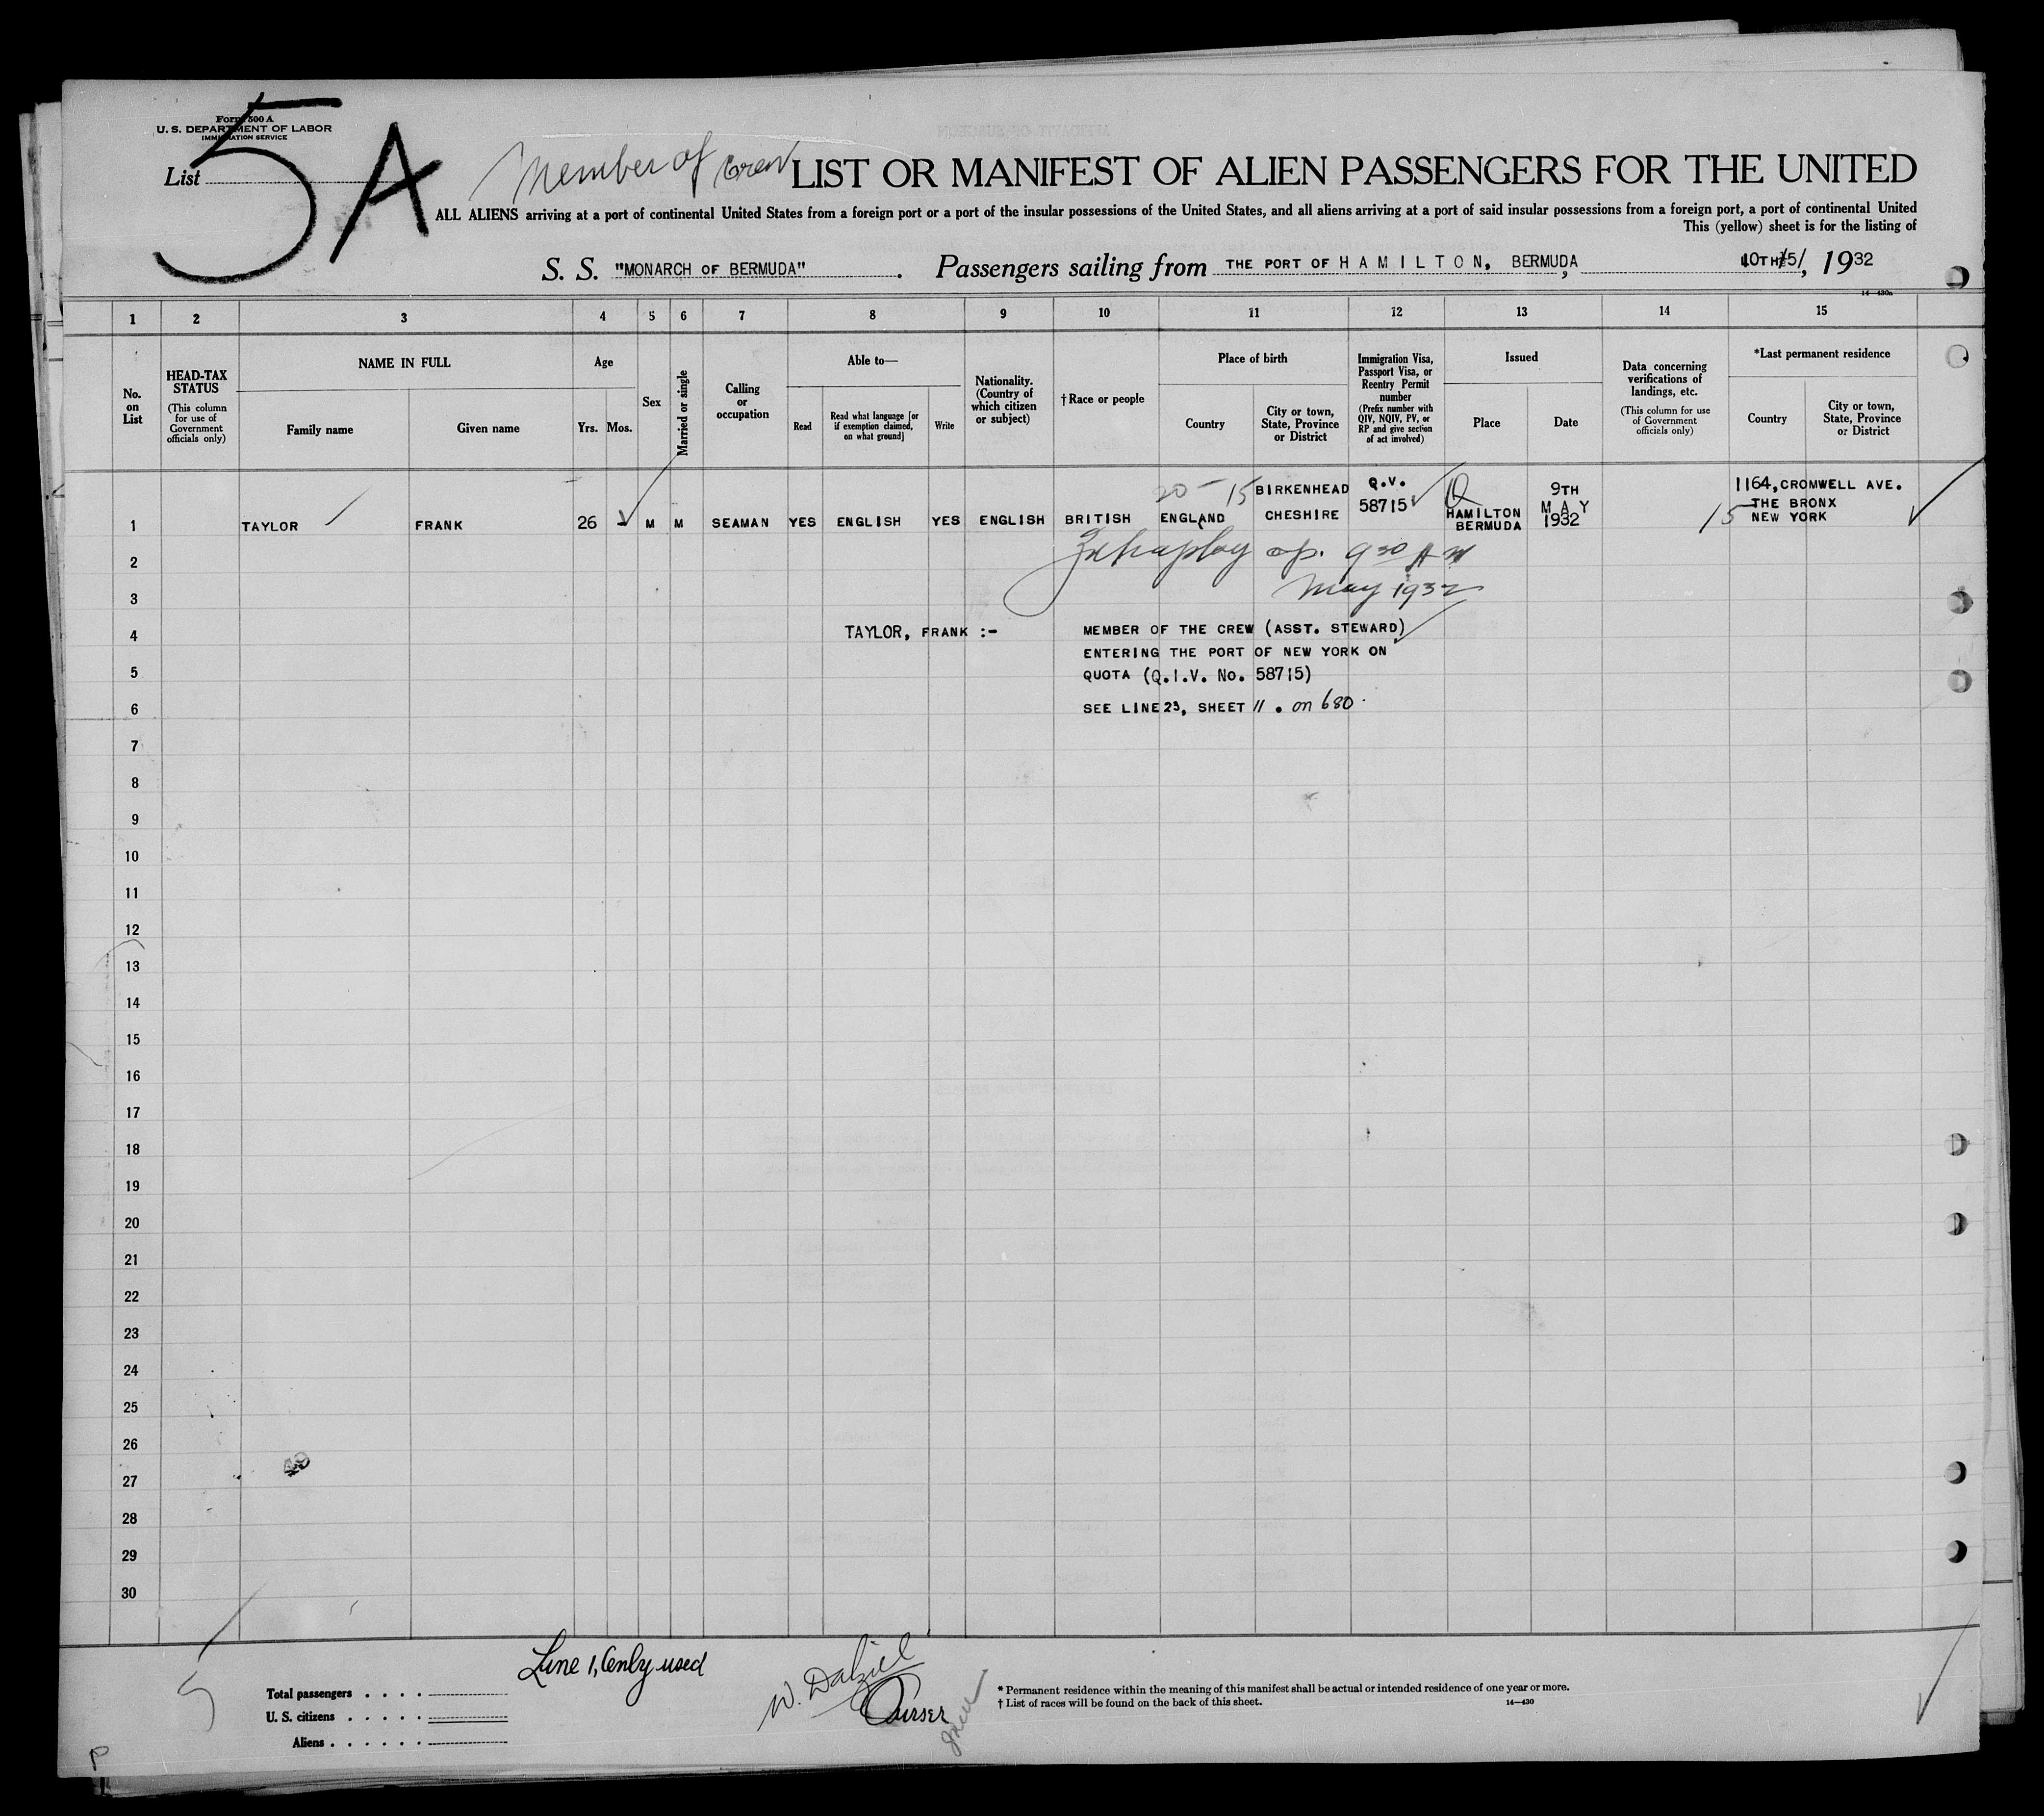 Form 500 A
U. S. DEPARTMENT OF LABOR
IMMIGRATION SERVICE
List 5 A
Member of Crew
LIST OR MANIFEST OF ALIEN PASSENGERS FOR THE UNITED
ALL ALIENS arriving at a port of continental United States from a foreign port or a port of the insular possessions of the United States, and all aliens arriving at a port of said insular possessions from a foreign port, a port of continental United
This (yellow) sheet is for the listing of
S. S. "MONARCH OF BERMUDA". Passengers sailing from THE PORT OF HAMILTON, BERMUDA, 10TH/5/, 1932
14—430a
1 2 3 4 5 6 7 8 9 10 11 12 13 14 15
No. on List
HEAD-TAX STATUS
(This column for use of Government officials only)
NAME IN FULL
Family name
Given name
Age
Yrs.
Mos.
Sex
Married or single
Calling or occupation
Able to—
Read
Read what language [or if exemption claimed, on what ground]
Write
Nationality. (Country of which citizen or subject)
†Race or people
Place of birth
Country
City or town, State, Province or District
Immigration Visa, Passport Visa, or Reentry Permit number
(Prefix number with QIV, NQIV, PV, or RP and give section of act involved)
Issued
Place
Date
Data concerning verifications of landings, etc.
(This column for use of Government officials only)
*Last permanent residence
Country
City or town, State, Province or District
20 - 15 BIRKENHEAD Q.V. Q 9TH 1164, CROMWELL AVE.
58715 HAMILTON MAY 15 THE BRONX
1 TAYLOR FRANK 26 M M SEAMAN YES ENGLISH YES ENGLISH BRITISH ENGLAND CHESHIRE BERMUDA 1932 NEW YORK
2 9 30 AM
3 May 1932
4 TAYLOR, FRANK :- MEMBER OF THE CREW (ASST. STEWARD)
ENTERING THE PORT OF NEW YORK ON
5 QUOTA (Q.I.V. No. 58715)
6 SEE LINE 23, SHEET 11 . on 680.
7
8
9
10
11
12
13
14
15
16
17
18
19
20
21
22
23
24
25
26
27
28
29
30
Line 1, Only used
W. Dalziel
Purser
5
Total passengers
U. S. citizens
Aliens
* Permanent residence within the meaning of this manifest shall be actual or intended residence of one year or more.
† List of races will be found on the back of this sheet.
14—430
P